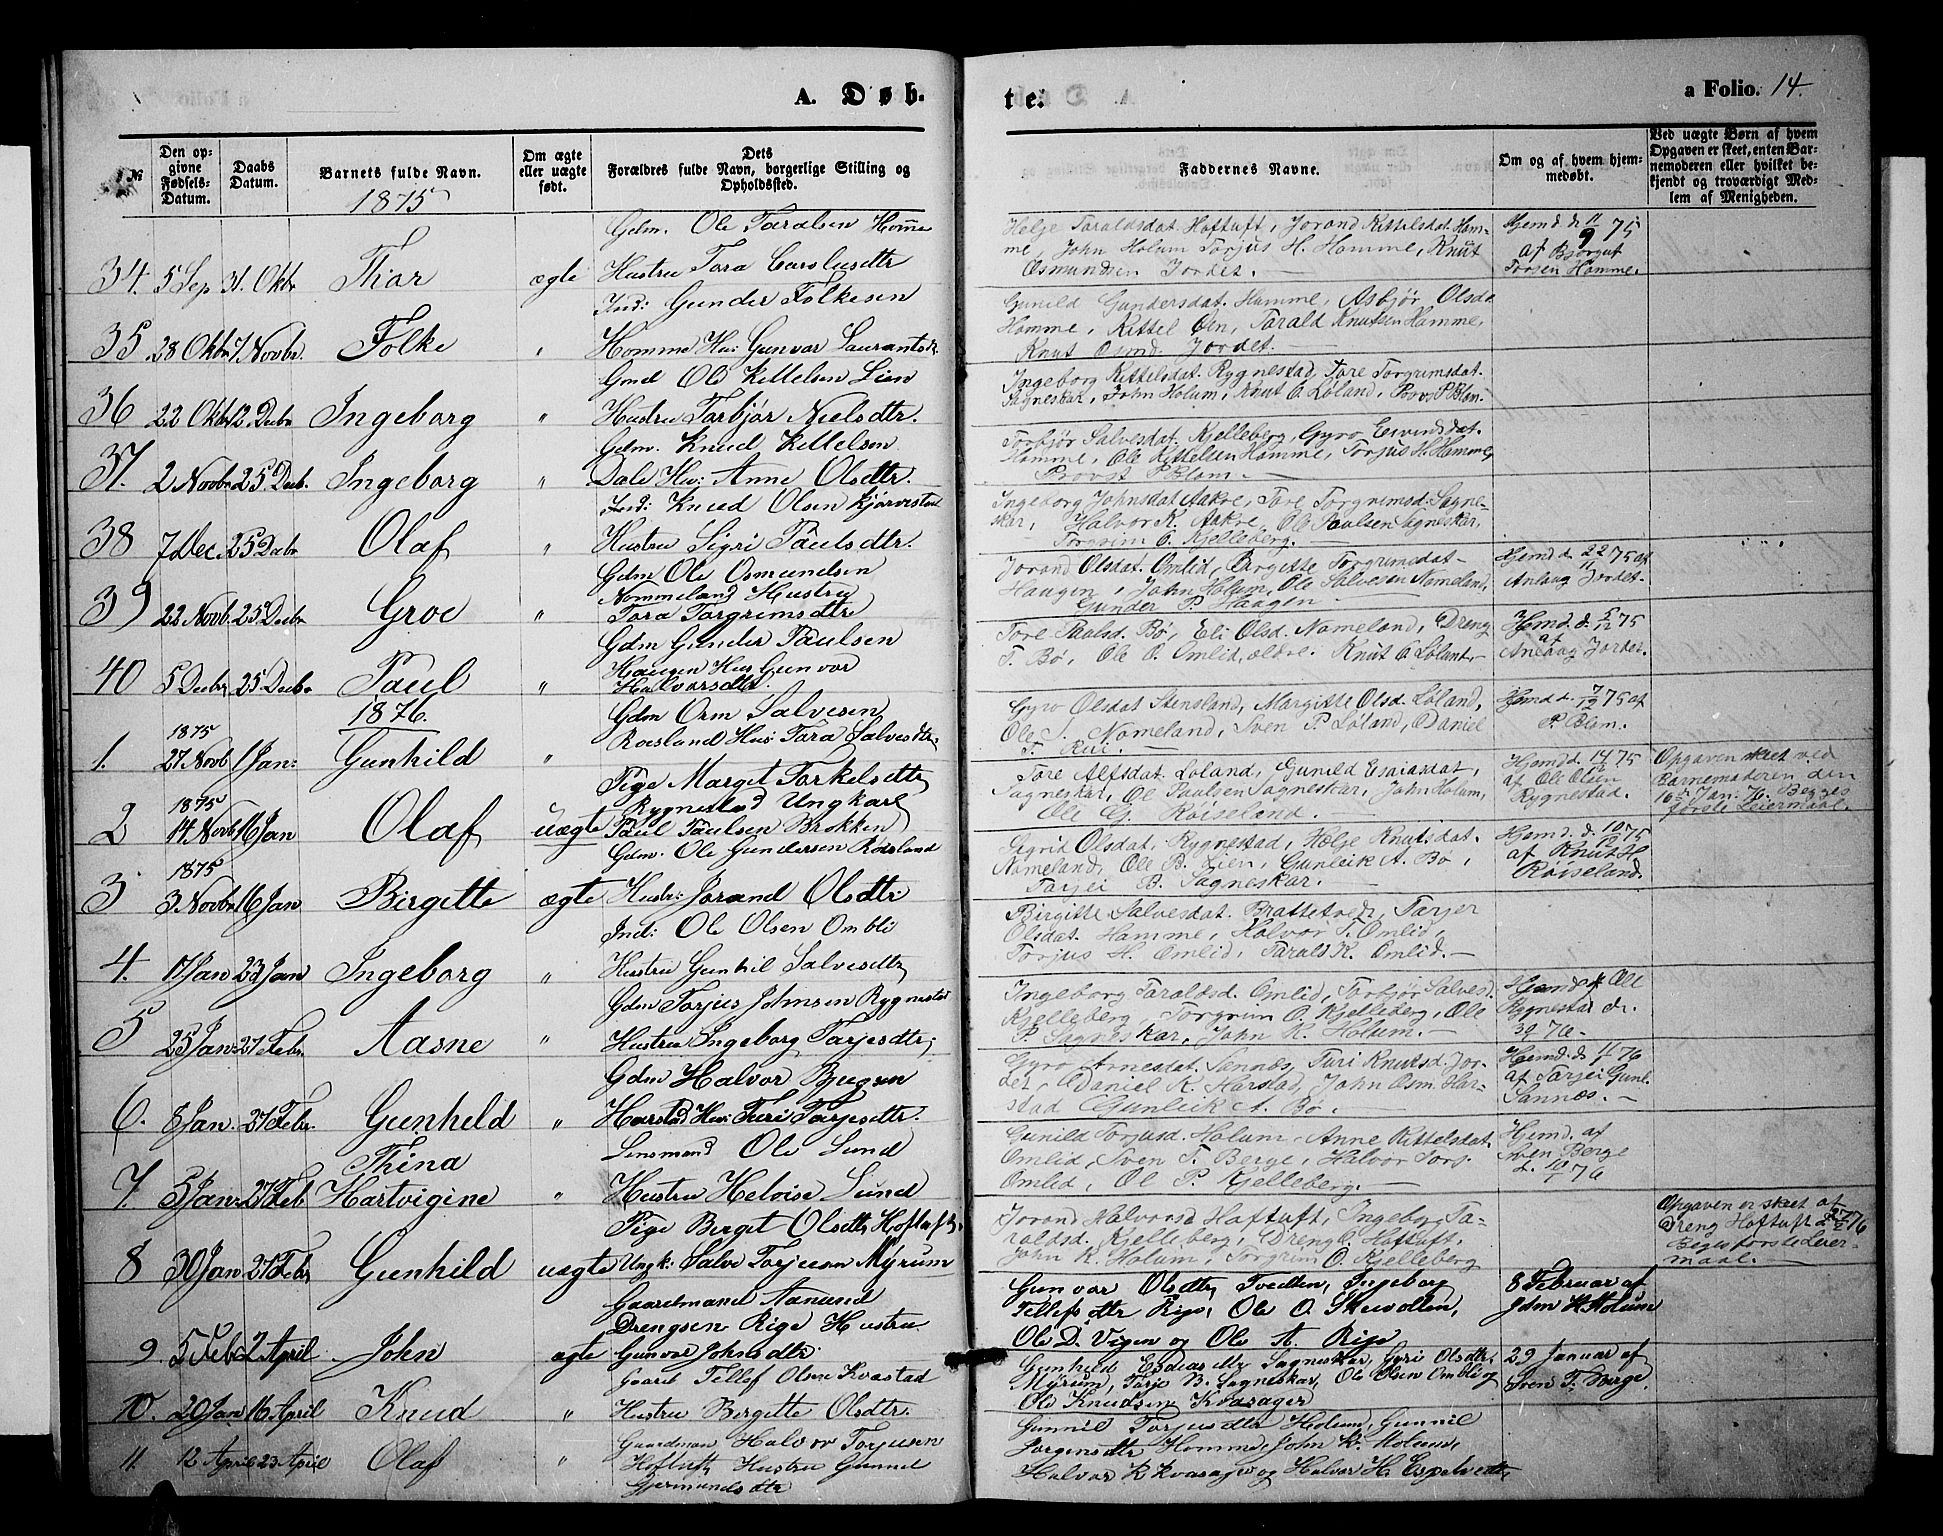 A. Døb-
te:
a Folio. 14.
№
Den opgivne Fødsels-Datum.
Daabs Datum.
Barnets fulde Navn.
Om ægte eller uægte født.
Dets Forældres fulde Navn, borgerlige Stilling og Opholdssted.
Faddernes Navne.
Om og af hvem hjemmedøbt.
Ved uægte Børn af hvem Opgaven er skeet, enten Barnemoderen eller hvilket bekjendt og troværdigt Medlem af Menigheden.
1875
Gdm. Ole Taralsen Homme
34. 5 Sep 31. Okbr Thor ægte Hustru Tora Carolusdtr
Helje Taraldsdat. Haftuft, Jorand Kittelsdat. Ham-
me, John Holum Torjus H. Hamme, Knut
Osmundsen Jordet. —
Hjemd. d. 11/9 75
af Bjorgut
Torsen Hamme.
Ind: Gunder Folkesen
35 28 Okbr 7. Novbr. Folke " Homme Hus: Gunvor Laurantsdr.
Gunild Gundersdat. Hamme, Asbjør Olsda
Hamme, Kittel Øen, Tarald Knutsen Hamme,
Knut Osmd. Jordet. —
Gmd Ole Kittelsen Lien
36 22 Okbr 12. Decbr Ingeborg " Hustru Torbjør Nielsdtr.
Ingeborg Kittelsdat. Rygnestad, Tore Torgrimsdat.
Sagneskar, John Holum, Knut O. Løland, Provst P. Blom.
Gdm. Knud Kittelsen
37. 2 Novbr 25 Decb. Ingeborg " Dale Hu: Anne Olsdtr.
Torbjør Salvesdat. Kjelleberg, Gyro Eivindsdat.
Hamme, Ole Kittelsen Hamme, Torjus H. Hamme,
Provst P. Blom. —
Ind: Knud Olsen Kjörvestad
38 7 Dec. 25 Decbr Olaf " Hustru Sigri Paulsdtr.
Ingeborg Johnsdat Aakre, Tore Torgrimsd. Sagne-
skar, Halvor K. Aakre, Ole Paulsen Sagneskar,
Torgrim O. Kjelleberg. —
Gdm Ole Osmundsen
Nommeland Hustru
39 22 Novb. 25 Decbr Groe " Tora Torgrimsdtr
Jorand Olsdat. Omlid, Birgitte Torgrimsdat-
Haugen, John Holum, Ole Salvesen Nomeland,
Gunder P. Haugen. —
Hjemd d. 22/11 75 af
Anlaug Jordet.
Gdm Gunder Paulsen
40 5 Decbr 25 Decbr Paul " Haugen Hus Gunvor
Halvorsdtr.
Tore Paalsd. Bø, Eli Olsd. Nomeland, Dreng
T. Bø, Ole O. Omlid, ældre. Knut O. Løland. —
Hjemd. d. 5/12 75
af
Anlaug Jordet.
1876.
Gdm Orm Salvesen
1. 1875 27 Novb 1 Jan: Gunhild " Roesland Hus: Tora Salvesdtr.
Gyro Olsdat Stensland, Margitte Olsd. Løland,
Ole S. Nomeland, Sven P. Løland, Daniel
T. Rui. —
Hjemd d. 7/12 75 af
P. Blom.
Pige Marget Torkelsdtr
Rygnestad Ungkarl
2 1875 14 Novb 16 Jan Olaf uægte Paul Paulsen Brokken
Tore Alfsdat. Løland, Gunild Esaiasdat,
Sagneskar, Ole Paulsen Sagneskar, John Holum,
Ole G. Røiseland. —
Hjemd d. 14/11 75
af Ole Olsen
Rygnestad.
Opgaven skeet ved
Barnemoderen den
16de Jan. 76. Begges
første Leiermaal.
Gdm. Ole Gundersen Roesland
3 1875 3. Novbr 16 Jan Birgitte ægte Hustr: Jorand Olsdtr.
Sigrid Olsdat, Rygnestad, Hælje Knutsdat.
Nomeland, Ole B. Lien, Gunleik A. Bø,
Tarjei B. Sagneskar. —
Hjemd. d. 10/12 75
af Knut H.
Røiseland.
Ind: Ole Olsen Ombli
4. 17 Jan 23 Jan Ingeborg " Hustru Gunhil Salvesdtr
Birgitte Salvesdat. Brattetvedt, Tarjer
Olsdat. Hamme, Halvor T. Omlid,
Torjus H. Omlid, Tarald K. Omlid. —
Gdm Torjus Johnsen Rygnestad
5 25 Jan. 27 Febr. Aasne " Hustru Ingeborg Tarjesdtr.
Ingeborg Taraldsd. Omlid, Torbjør Salvesd.
Kjelleberg, Torgrim O. Kjelleberg, Ole
P. Sagneskar, John K. Holum. —
Hjemd af Ole
Rygnestad d.
Gdm Halvor Bjugsen
6. 8 Jan. 27 Febr. Gunheld " Harstad Hus: Turi Tarjesdtr.
Gyro Arnesdat. Sannæs, Turi Knutsd. Jor-
det, Daniel K. Harstad, John Osm. Har-
stad Gunleik A. Bø. —
Hjemd. d.
af Tarjei Gunl.
Sannæs. —
Lensmand Ole Lund
7. 5 Jan. 27 Feb Thina Hartvigine " Hustru Heloise Lund
Gunild Torjusd. Holum, Anne Kittelsdat.
Omlid, Sven T. Berge, Halvor Torj.
Omlid, Ole P. Kjelleberg. —
Hjemd. af
Sven Berge
d. 10/1 76
Pige Berget Olsdtr Hoftuft
8 30 Jan 27 Febr Gunhild uægte Ungk: Salve Torjusen Myrum
Jorand Halvorsd Haftuft, Ingeborg Ta-
raldsd. Kjelleberg, Dreng O. Haftuft,
John K. Holum, Torgrim O. Kjelleberg
Opgaven er skeet af
Dreng Hoftuft d. 27/2 76
Beges første Leier-
maal. —
Gaardmand Aanund
Drengsen Rige Hustru
9. 5 Feb 2 April John ægte Gunvor Johnsdtr.
Gunvor Olsdtr Tvedten, Ingeborg
Tellefsdtr Rige, Ole O. Skevollen,
Ole D. Vigen og Ole A. Rige
8 Februar af
Gdm K. Holum
Gaard Tellef Olsen Kvastad
10. 20 Jan 16 April Knud " Hustru Bergitte Olsdtr.
Gunhild Esaiasdtr Sagneskar, Gyri Olsdtr.
Myrum, Tarje B. Sagneskar, Ole Olsen Ombli og
Ole Knudsen Kvasager
29 Januar af
Sven T. Berge
Gaardman Halvor Torjusen
11. 12 April 23 April Olaf " Hoftuft Hustru Gunnil
Gjermundsdtr
Gunnil Torjusdtr Holum, Gunnil
Jorgensdtr Homme, John K. Holum,
Halvor K Kvasager og Halvor H. Espetvedt